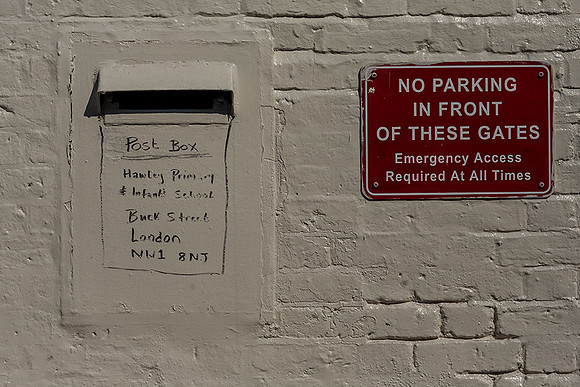 Post Box
Hawley Primary
& Infants School
Buck Street
London
NW1 8NJ
NO PARKING
IN FRONT
OF THESE GATES
Emergency Access
Required At All Times